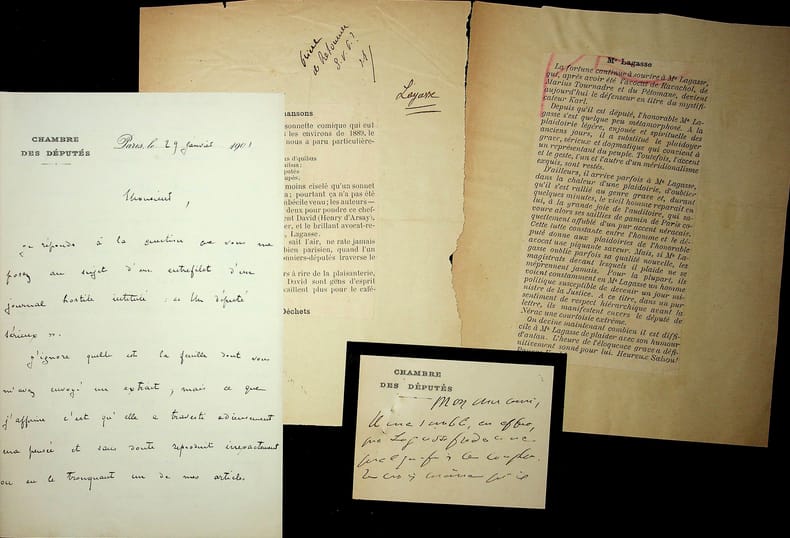 CHAMBRE
DES DÉPUTÉS
Paris, le 29 janvier 1901
Monsieur,
je réponds à la question que vous me
posez au sujet d'un entrefilet d'un
journal hostile intitulé : « Un député
sérieux ».
j'ignore quelle est la feuille dont vous
m'avez envoyé un extrait, mais ce que
j'affirme c'est qu'elle a travesti odieusement
ma pensée et sans doute reproduit inexactement
ou en le tronquant un de mes articles
Prière
de Retourner
S. v. p.
Lagasse
hansons
sonnette comique qui eut
les environs de 1889, le
nous a paru particulière-
d'quibus
uibus;
députés
upés.
moins ciselé qu'un sonnet
a; pourtant ça n'a pas été
mbécile venu; les auteurs—
deux pour pondre ce chef-
ent David (Henry d'Arsay),
er, et le brillant avocat-re-
Lagasse.
sait l'air, ne rate jamais
bien parisien, quand l'un
onniers-députés traverse le
rs à rire de la plaisanterie,
David sont gens d'esprit
aillent plus pour le café-
Déchets
Mᵉ Lagasse
La fortune continue à sourire à Mᵉ Lagasse,
qui, après avoir été l'avocat de Ravachol, de
Marius Tournadre et du Pétomane, devient
aujourd'hui le défenseur en titre du mystifi-
cateur Karl.
Depuis qu'il est député, l'honorable Mᵉ La-
gasse s'est quelque peu métamorphosé. A la
plaidoirie légère, enjouée et spirituelle des
anciens jours, il a substitué le plaidoyer
grave, sérieux et dogmatique qui convient à
un représentant du peuple. Toutefois, l'accent
et le geste, l'un et l'autre d'un méridionalisme
exquis, sont restés.
D'ailleurs, il arrive parfois à Mᵉ Lagasse,
dans la chaleur d'une plaidoirie, d'oublier
qu'il s'est rallié au genre grave et, durant
quelques minutes, le vieil homme reparaît en
lui, à la grande joie de l'auditoire, qui sa-
voure alors ses saillies de gamin de Paris co-
quettement affublé d'un pur accent néracais.
Cette lutte constante entre l'homme et le dé-
puté donne aux plaidoiries de l'honorable
avocat une piquante saveur. Mais, si Mᵉ La-
gasse oublie parfois sa qualité nouvelle, les
magistrats devant lesquels il plaide ne se
méprennent jamais. Pour la plupart, ils
voient constamment en Mᵉ Lagasse un homme
politique susceptible de devenir un jour mi-
nistre de la Justice. A ce titre, dans un pur
sentiment de respect hiérarchique avant la
lettre, ils manifestent envers le député de
Nérac une courtoisie extrême.
On devine maintenant combien il est diffi-
cile à Mᵉ Lagasse de plaider avec son humour
d'antan. L'heure de l'éloquence grave a défi-
nitivement sonné pour lui. Heureux Salsou!
CHAMBRE
DES DÉPUTÉS
Mon cher ami,
Il me semble, en effet,
que Lagasse